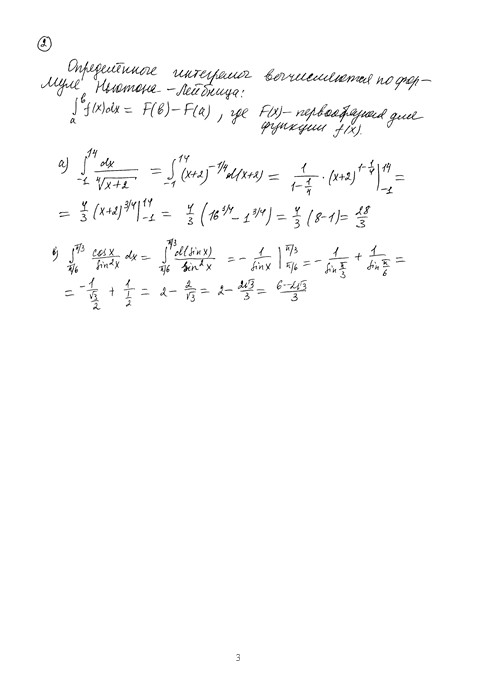 2
Определённые интегралы вычисляются по фор-
муле Ньютона-Лейбница:
∫_a^b f(x)dx = F(b) - F(a), где F(x) - первообразная для
функции f(x).
а) ∫_{-1}^{14} dx/⁴√(x+2) = ∫_{-1}^{14} (x+2)^{-1/4} d(x+2) = 1/(1-1/4) · (x+2)^{1-1/4} |_{-1}^{14} =
= 4/3 (x+2)^{3/4} |_{-1}^{14} = 4/3 (16^{3/4} - 1^{3/4}) = 4/3 (8-1) = 28/3
в) ∫_{π/6}^{π/3} cosx/sin²x dx = ∫_{π/6}^{π/3} d(sinx)/sin²x = - 1/sinx |_{π/6}^{π/3} = - 1/sin(π/3) + 1/sin(π/6) =
= -1/(√3/2) + 1/(1/2) = 2 - 2/√3 = 2 - 2√3/3 = (6-2√3)/3
3